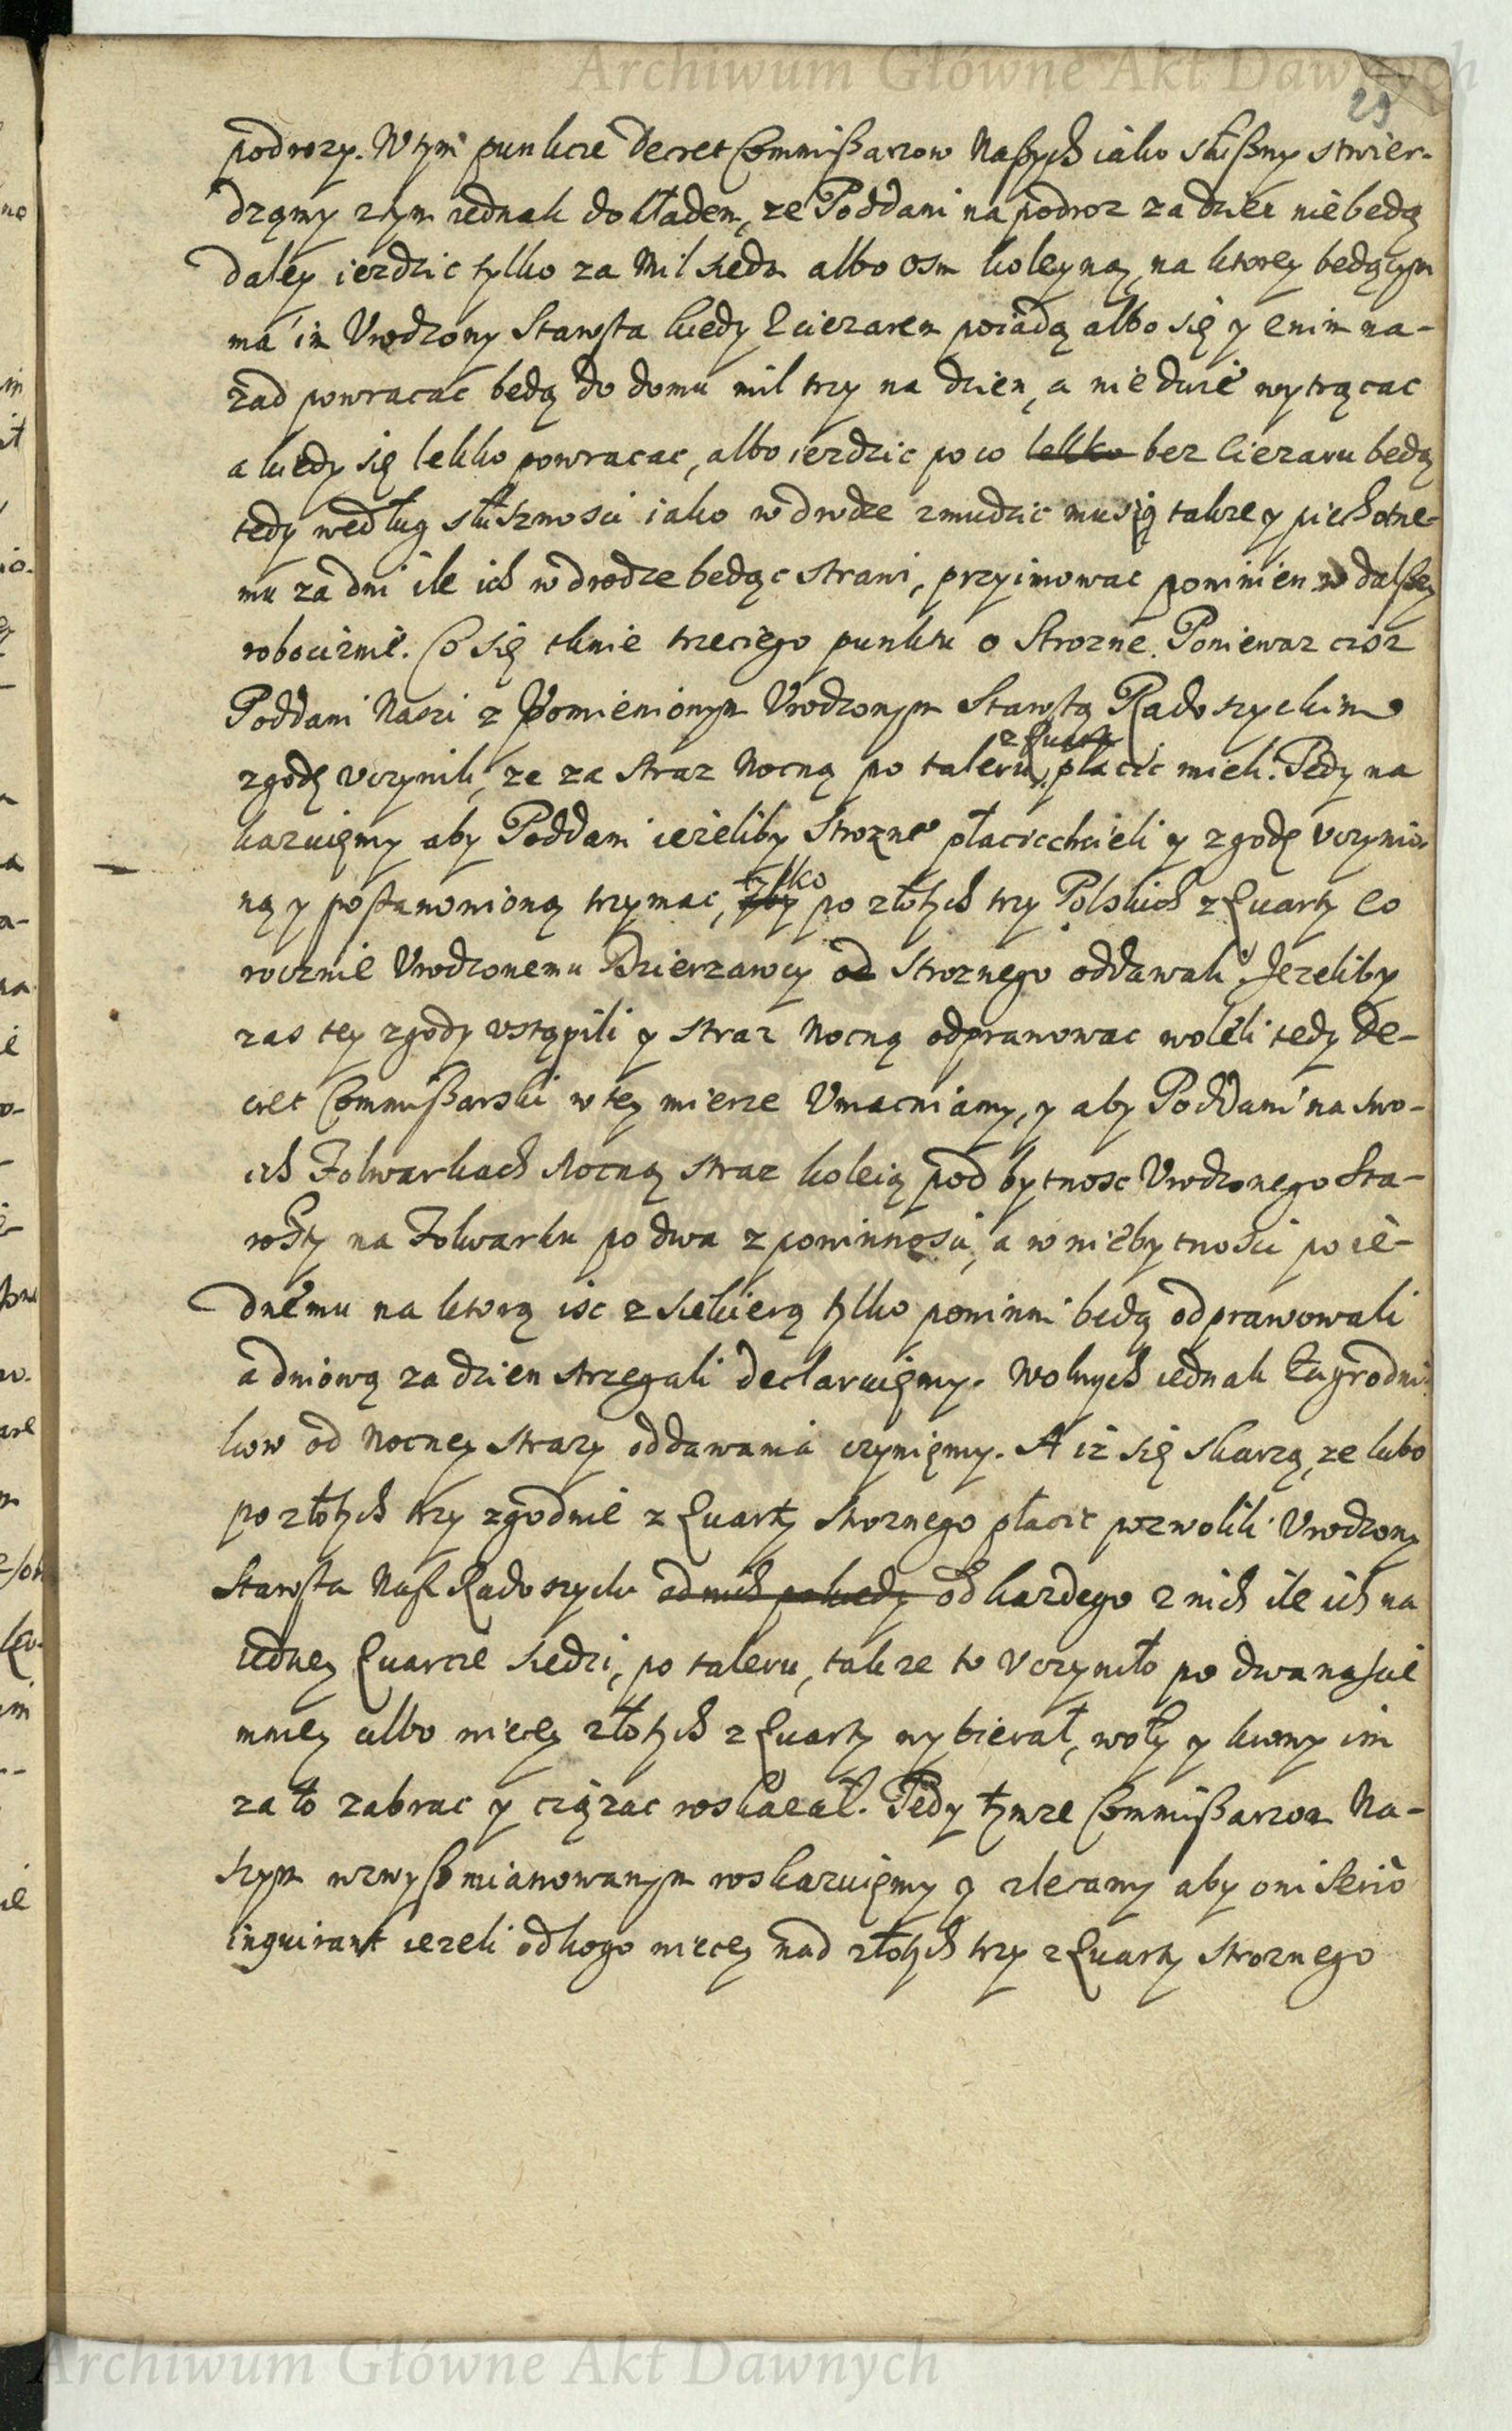 Archiwum Główne Akt Dawnych
29
podrozy. W tym punkcie Decret Commißarzow Naßych iako słußny stwier-
dzamy z tym iednak dokładem, ze Poddani na podroz za dzien nie będą
daley iezdzic tylko za Mil siedm albo osm koleyną, na ktorey będącym
ma im Urodzony Starosta kiedy z ciezarem poiadą albo się y z nim na-
zad powracac będą do domu mil trzy na dzien, a nie dwie wytrącac
a kiedy się lekko powracac, albo iezdzic po co lekko bez ciezaru będą
tedy według słusznosci iako w drodze zmudzic muszą takze y piechotne-
mu za dni ile ich w drodze będąc strawi, przyimowac powinien w dalßey
robociznie. Co się tknie trzeciego punktu o Strozne. Poniewaz ciz
Poddani Naszi z Pomienionym Urodzonym Starostą Radoszyckim
zgodę uczynili, ze za straz Nocną po taleru z Quarty płacic mieli. Tedy na
kazuięmy aby Poddani iezeliby Strozne płacic chcieli y zgodę uczynio-
ną y postanowioną trzymac, aby tylko po złotych trzy Polskich z Quarty co
rocznie Urodzonemu Dzierzawcy od Stroznego oddawali. Jezeliby
zas tey zgody ustąpili y straz Nocną odprawowac woleli tedy De-
cret Commißarski w tey mierze Umacniamy, y aby Poddani na swo-
ich Folwarkach Nocną straz koleią pod bytnosc Urodzonego Sta-
rosty na Folwarku po dwa z powinnosci, a w niebytnosci po ie-
dnemu na ktorą isc z siekierą tylko powinni będą odprawowali
a dniową za dzien strzegali declaruięmy. Wolnych iednak Zagrodni-
kow od Nocney strazy oddawania czynięmy. A iz się skarzą, ze lubo
po złotych trzy zgodnie z Quarty stroznego płacic pozwolili Urodzony
Starosta Naß Radoszycki od nich pokiedy od kazdego z nich ile ich na
iedney Quarcie siedzi, po taleru, tak ze to uczyniło po dwanascie
mniey albo więcey złotych z Quarty wybierał, woły y krowy im
za to zabrac y ciązac roskazał. Tedy tymze Commißarzom Na-
szym wzwyß mianowanym roskazuięmy y zlecamy aby oni serio
inquirant iezeli od kogo więcey nad złotych trzy z Quarty stroznego
Archiwum Główne Akt Dawnych